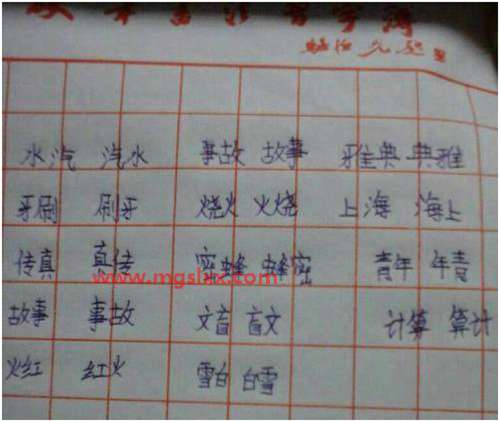 水汽 汽水 事故 故事 雅典 典雅
牙刷 刷牙 烧火 火烧 上海 海上
传真 真传 密蜂 蜂密 青年 年青
www.mgslxx.com
故事 事故 文盲 盲文 计算 算计
火红 红火 雪白 白雪